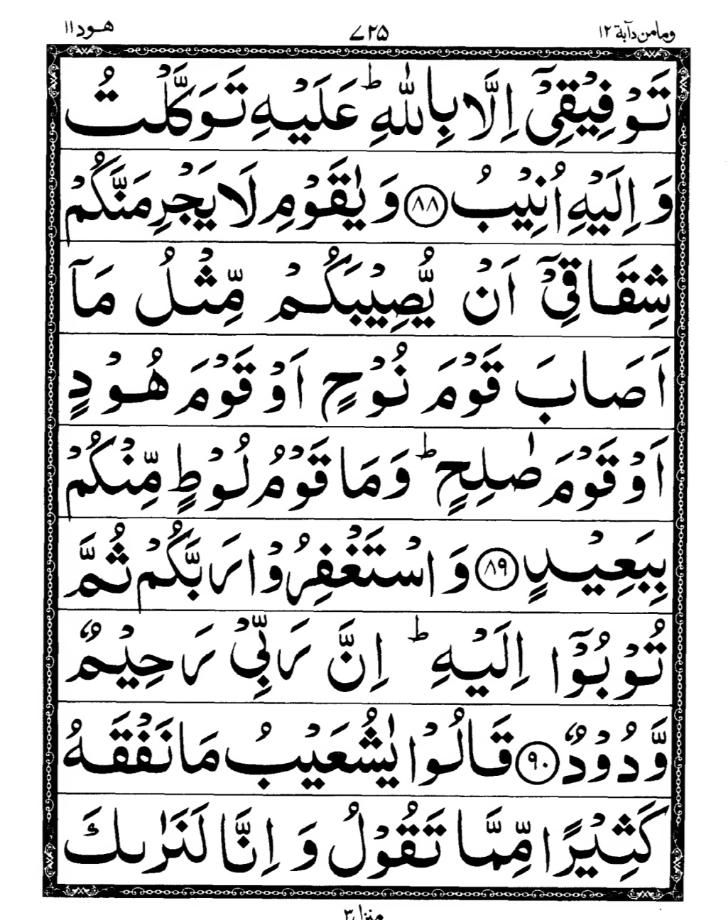 ومامن دآبة ۱۲ ۷۲۵ هود ۱۱
تَوْفِيْقِيْٓ اِلَّا بِاللّٰهِ ؕ عَلَيْهِ تَوَكَّلْتُ
وَ اِلَيْهِ اُنِيْبُ ﴿۸۸﴾ وَ يٰقَوْمِ لَا يَجْرِمَنَّكُمْ
شِقَاقِيْٓ اَنْ يُّصِيْبَكُمْ مِّثْلُ مَآ
اَصَابَ قَوْمَ نُوْحٍ اَوْ قَوْمَ هُوْدٍ
اَوْ قَوْمَ صٰلِحٍ ؕ وَ مَا قَوْمُ لُوْطٍ مِّنْكُمْ
بِبَعِيْدٍ ﴿۸۹﴾ وَ اسْتَغْفِرُوْا رَبَّكُمْ ثُمَّ
تُوْبُوْٓا اِلَيْهِ ؕ اِنَّ رَبِّيْ رَحِيْمٌ
وَّدُوْدٌ ﴿۹۰﴾ قَالُوْا يٰشُعَيْبُ مَا نَفْقَهُ
كَثِيْرًا مِّمَّا تَقُوْلُ وَ اِنَّا لَنَرٰىكَ
منزل ۳